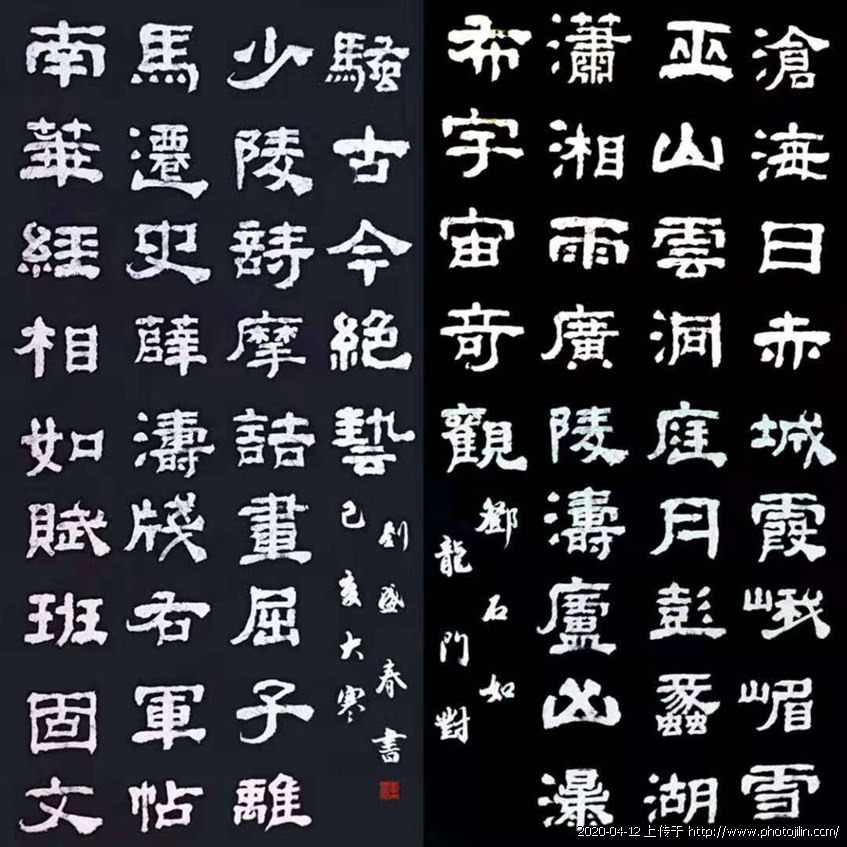 滄海日赤城霞峨嵋雪
巫山雲洞庭月彭蠡湖
瀟湘雨廣陵濤廬山瀑
布宇宙奇觀
鄧石如
龍門對
南華經相如賦班固文
馬遷史薛濤牋右軍帖
少陵詩摩詰畫屈子離
騷古今絕藝
己亥大寒
劉盛春書
2020-04-12 上传于 http://www.photojilin.com/